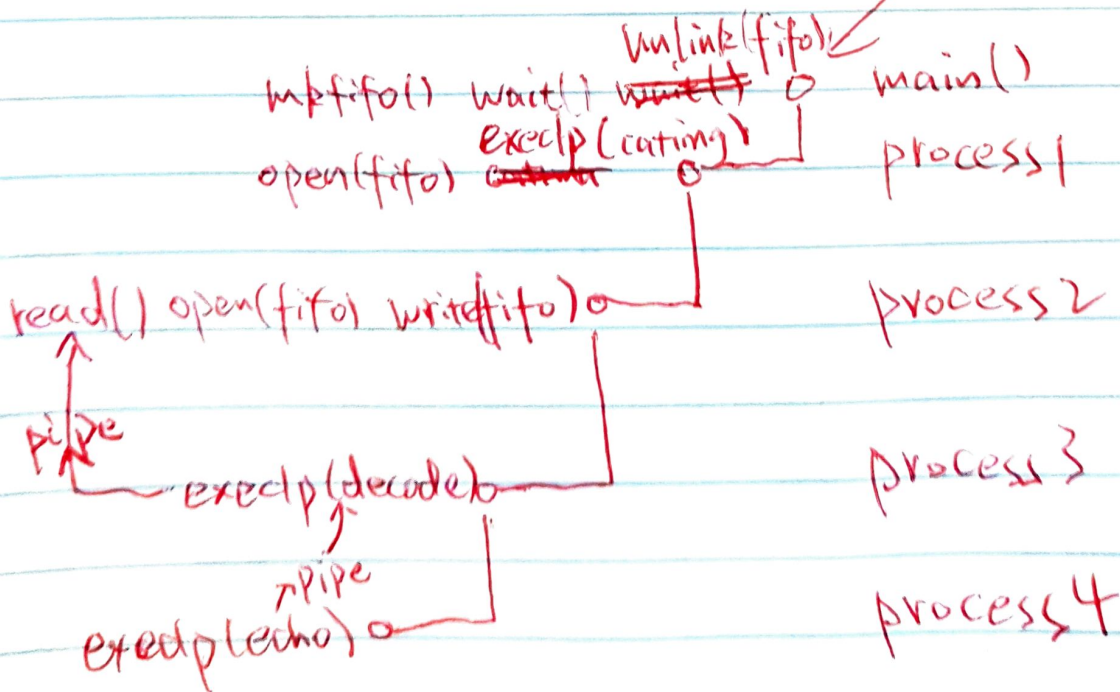 unlink(fifo)
mkfifo() wait() wait() main()
execlp(catimg)
open(fifo) process1
read() open(fifo) write(fifo) process2
pipe
execlp(decode) process3
pipe
execlp(echo) process4